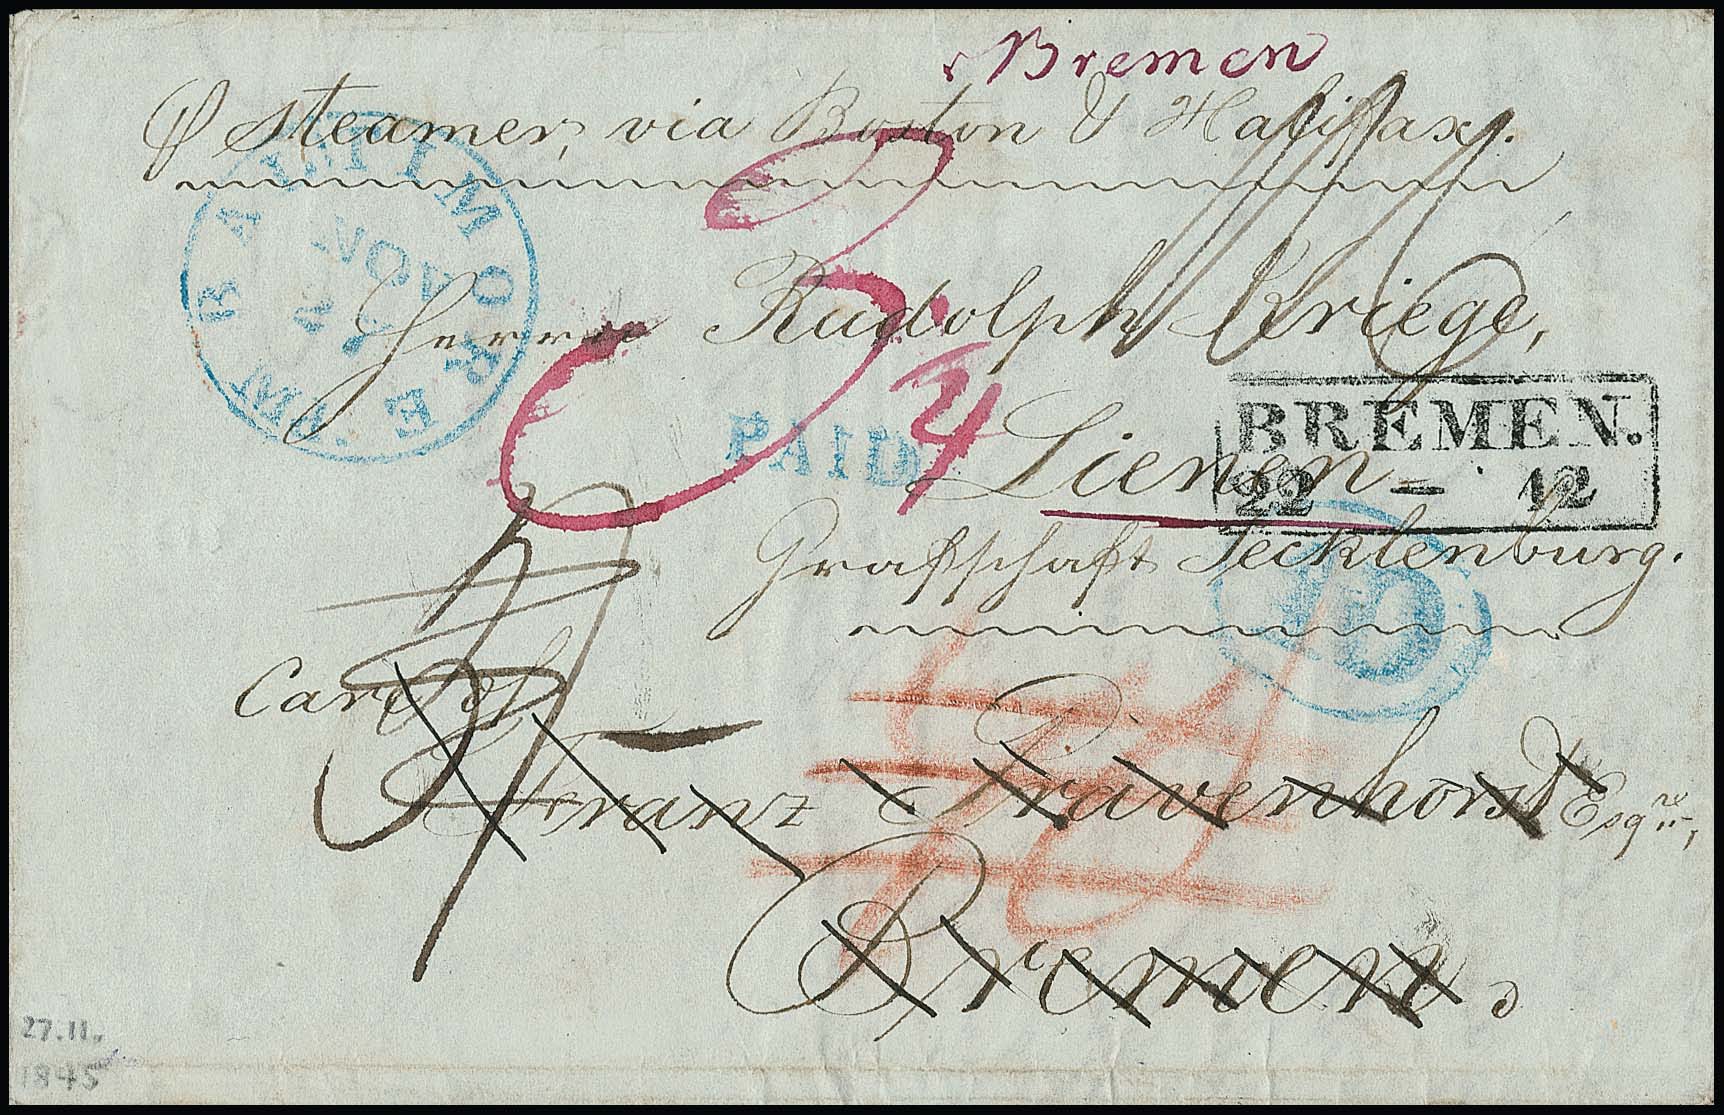 Bremen
p Steamer, via Boston & Halifax.
BALTIMORE Md.
NOV
Herrn Rudolph Kriege,
3/4
PAID
Lienen
BREMEN.
22 - 12
Grafschaft Tecklenburg.
10
Care of
Franz Pavenhorst Esqre,
Bremen.
27.11.
1845